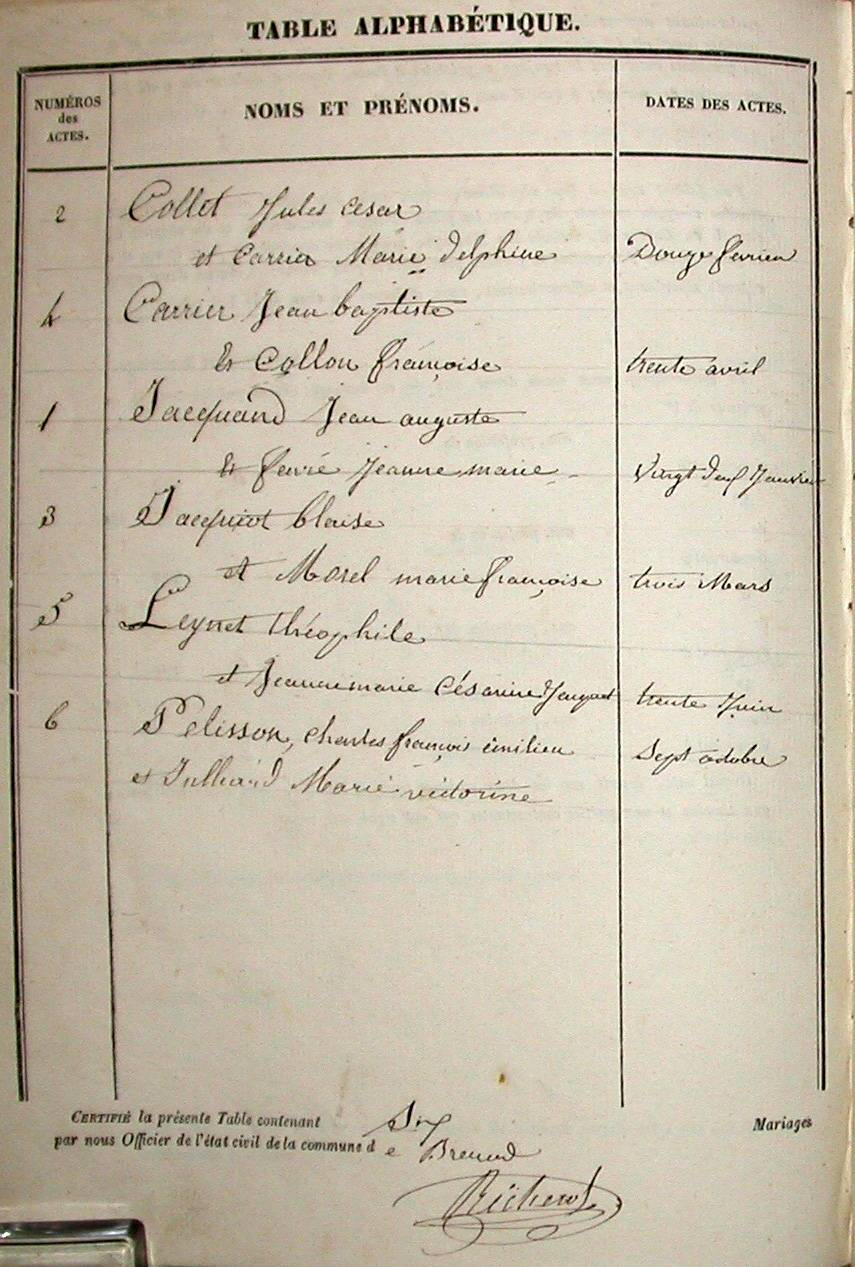 TABLE ALPHABÉTIQUE.
NUMÉROS
des
ACTES.
NOMS ET PRÉNOMS.
DATES DES ACTES.
2 Collet Jules Cesar
et Carrier Marie Delphine Douze fevrier
4 Carrier Jean baptiste
Et Collon françoise trente avril
1 Jacquand Jean auguste
Et fevre Jeanne marie Vingt deux Janvier
3 Jacquiot blaise
et Morel marie françoise trois Mars
5 Leynet théophile
et Jeanne marie Césarine trente Juin
6 Pelisson, charles françois émilien Sept octobre
et Julliard Marie victorine
CERTIFIÉ la présente Table contenant Six Mariages
par nous Officier de l'état civil de la commune d e Brenod